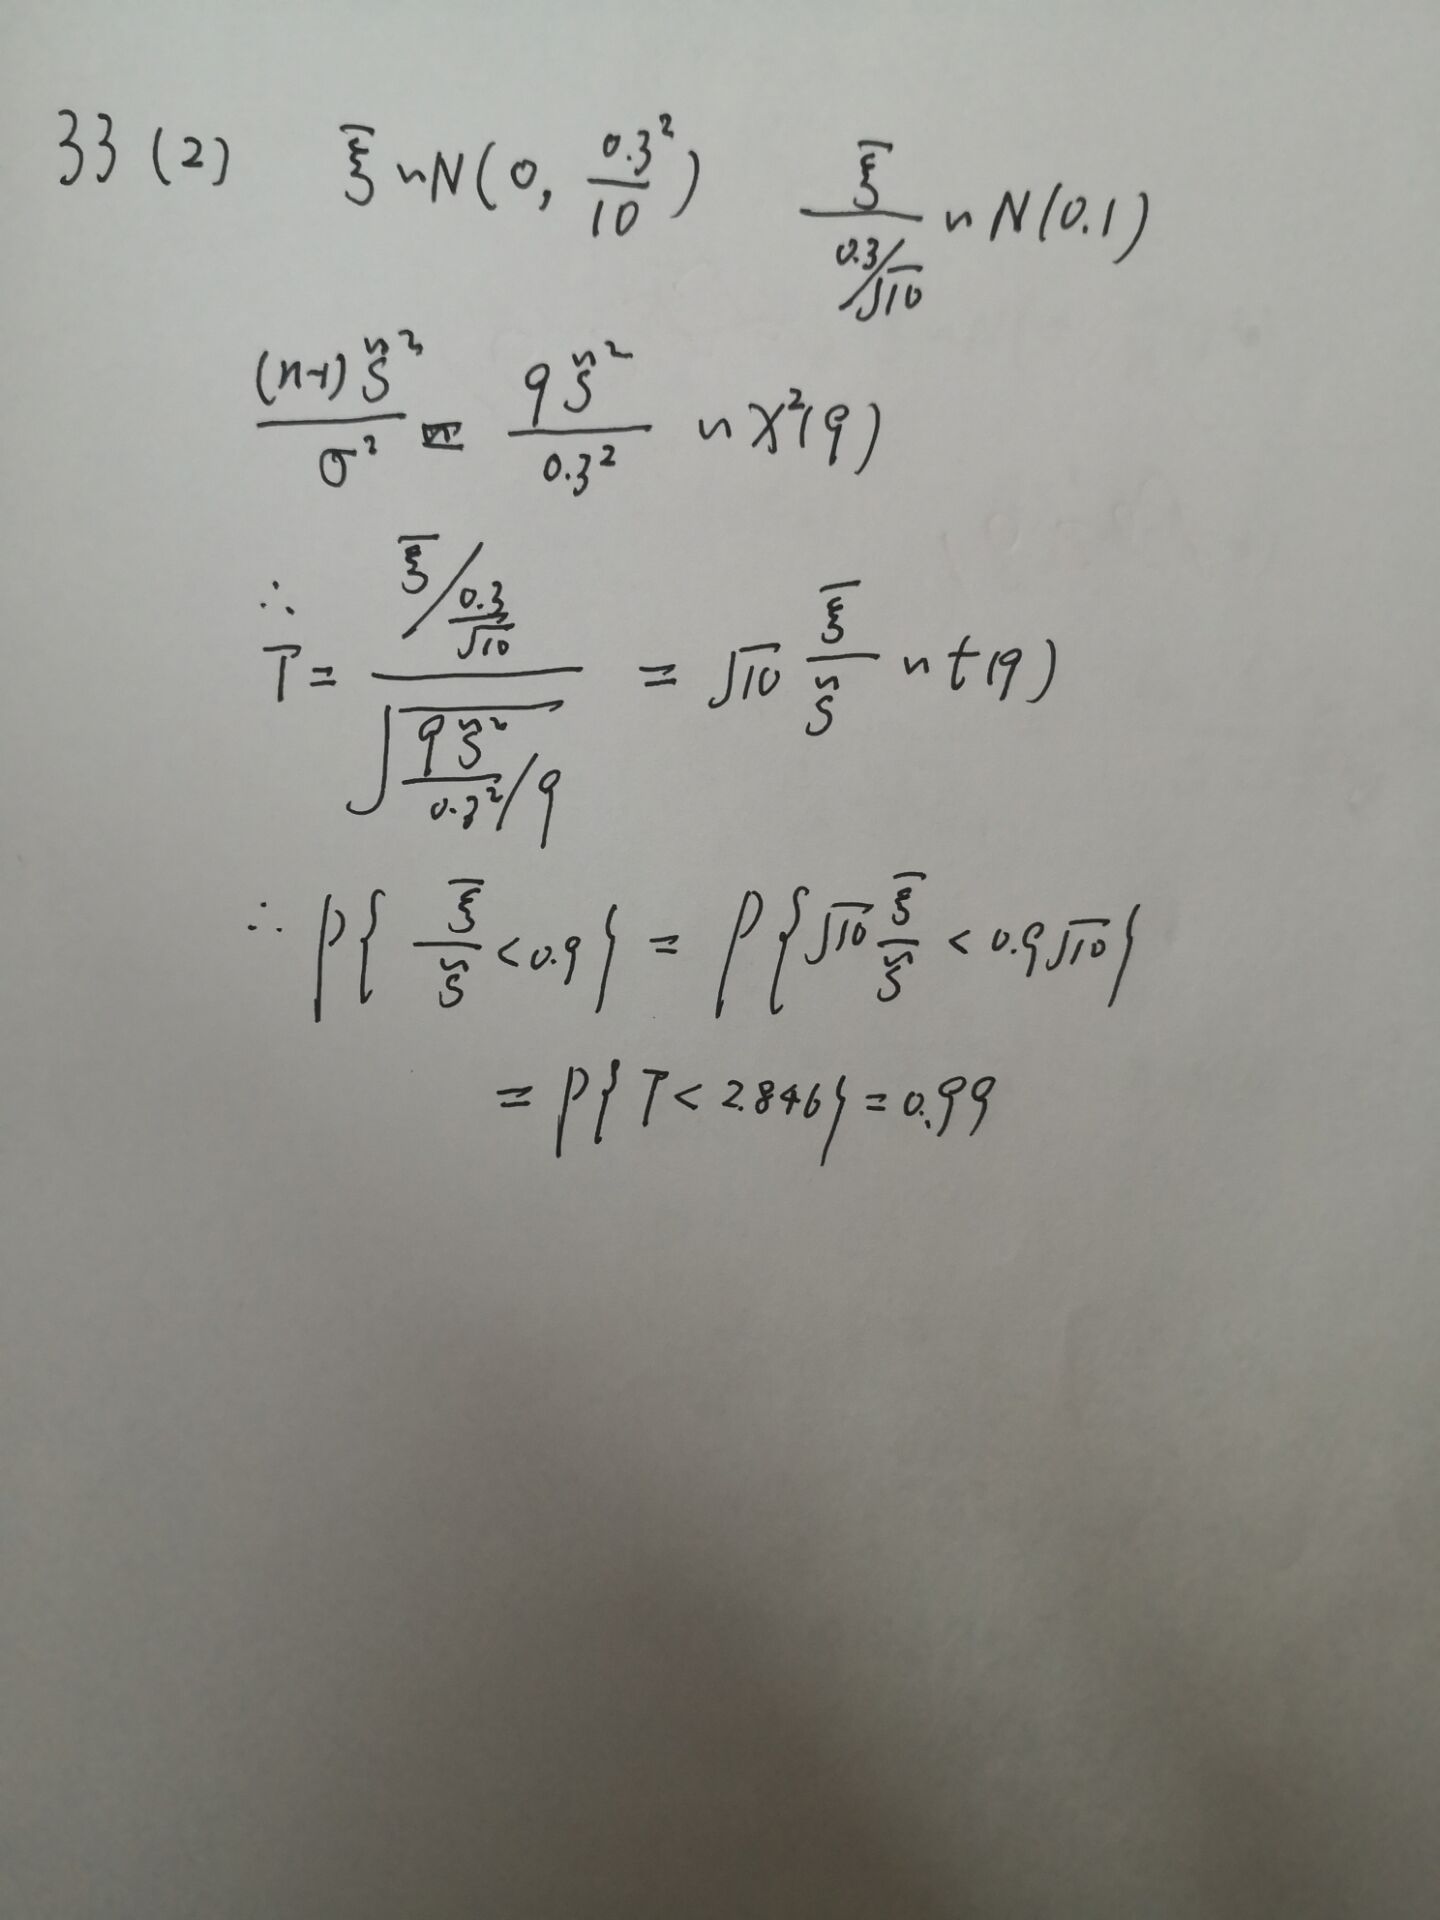 33 (2) ξ̄ ~ N(0, 0.3²/10) ξ̄/(0.3/√10) ~ N(0.1)
(n-1)S̃²/σ² = 9S̃²/0.3² ~ χ²(9)
∴ T = (ξ̄/(0.3/√10))/√((9S̃²/0.3²)/9) = √10 ξ̄/S̃ ~ t(9)
∴ P{ξ̄/S̃ < 0.9} = P{√10 ξ̄/S̃ < 0.9√10}
= P{T < 2.846} = 0.99